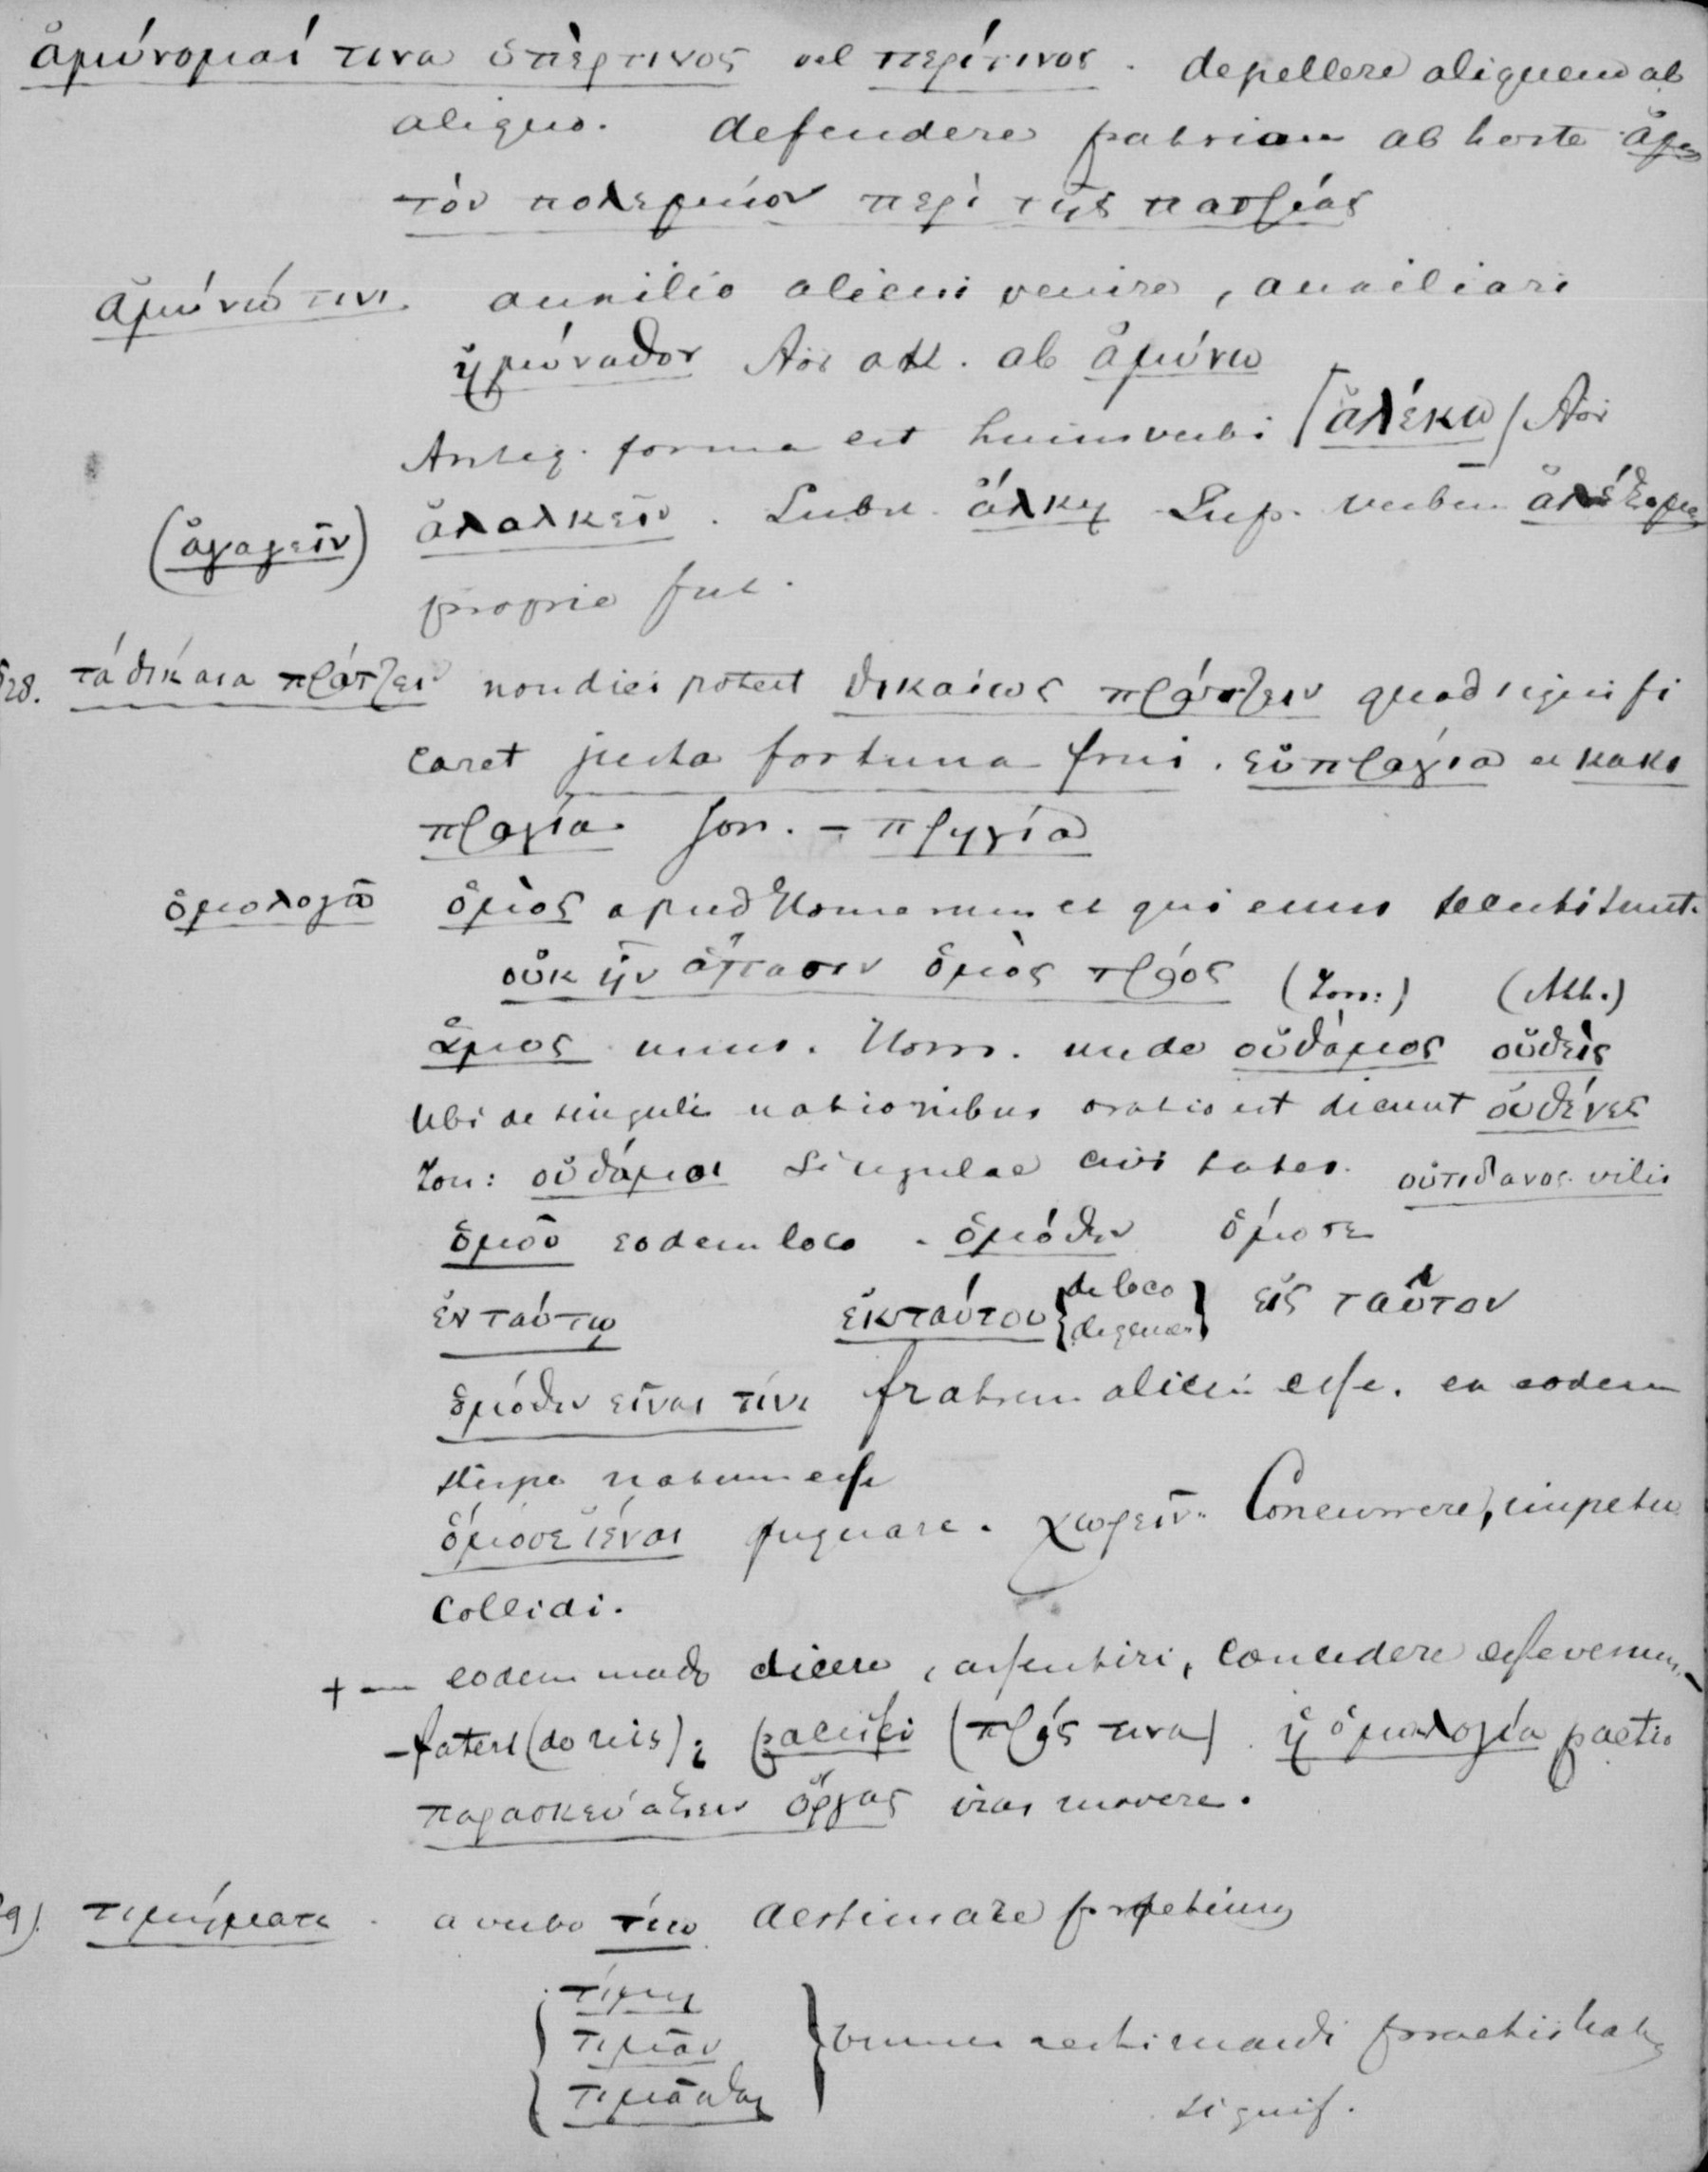 ἀμύνομαί τινα ὑπέρ τινος vel περί τινος. depellere aliquem ab
aliquo. defendere patriam ab hoste
τὸν πολεμίον περὶ τῆς πατρίας
ἀμύνω τινι. auxilio alicui venire, auxiliari
ἠμύναθον Aor att. ab ἀμύνω
Antiq. forma est huius verbi [ἀλέκω] Aor
(ἀγαγεῖν) ἀλαλκεῖν. Subst. ἀλκὴ Sup. verbum
proprie fut.
528. τὰ δίκαια πράττειν non dici potest δικαίως πράττειν quod signifi
caret justa fortuna frui. εὐπραγία et κακο
πραγία Jon. – πρηγία
ὁμολογῶ ὁμὸς apud Homerum et qui eum
οὐκ ἦν ἅπασιν ὁμὸς θρόος (Ion:) (Att.)
ἁμος unus. Hom. unde οὐδάμος οὐδεὶς
Ubi de singulis nationibus oratio est dicunt οὐδένες
Ion: οὐδάμοι singulae civitates. οὐτιδανος vilis
ὁμοῦ eodem loco. ὁμόθεν ὁμόσε
ἐν ταύτῳ ἐκ ταύτου {de loco} εἰς ταὐτον
{de genere}
ὁμόθεν εἶναι τινι fratrem alicui esse. ex eodem
stirpe natum esse
ὁμόσε ἰέναι pugnare. χωρεῖν. Concurrere, impetu
collidi.
+ — eodem modo dicere, assentiri, concedere esse verum,
– fateri (de reis); pacisci (πρός τινα) ἡ ὁμολογία pactio
παρασκευάζειν ὀργας iras movere.
29). τιμήματι. a verbo τίω aestimare
τίμη
τιμᾶν } omnes aestimandi
τιμᾶσθαι
signif.